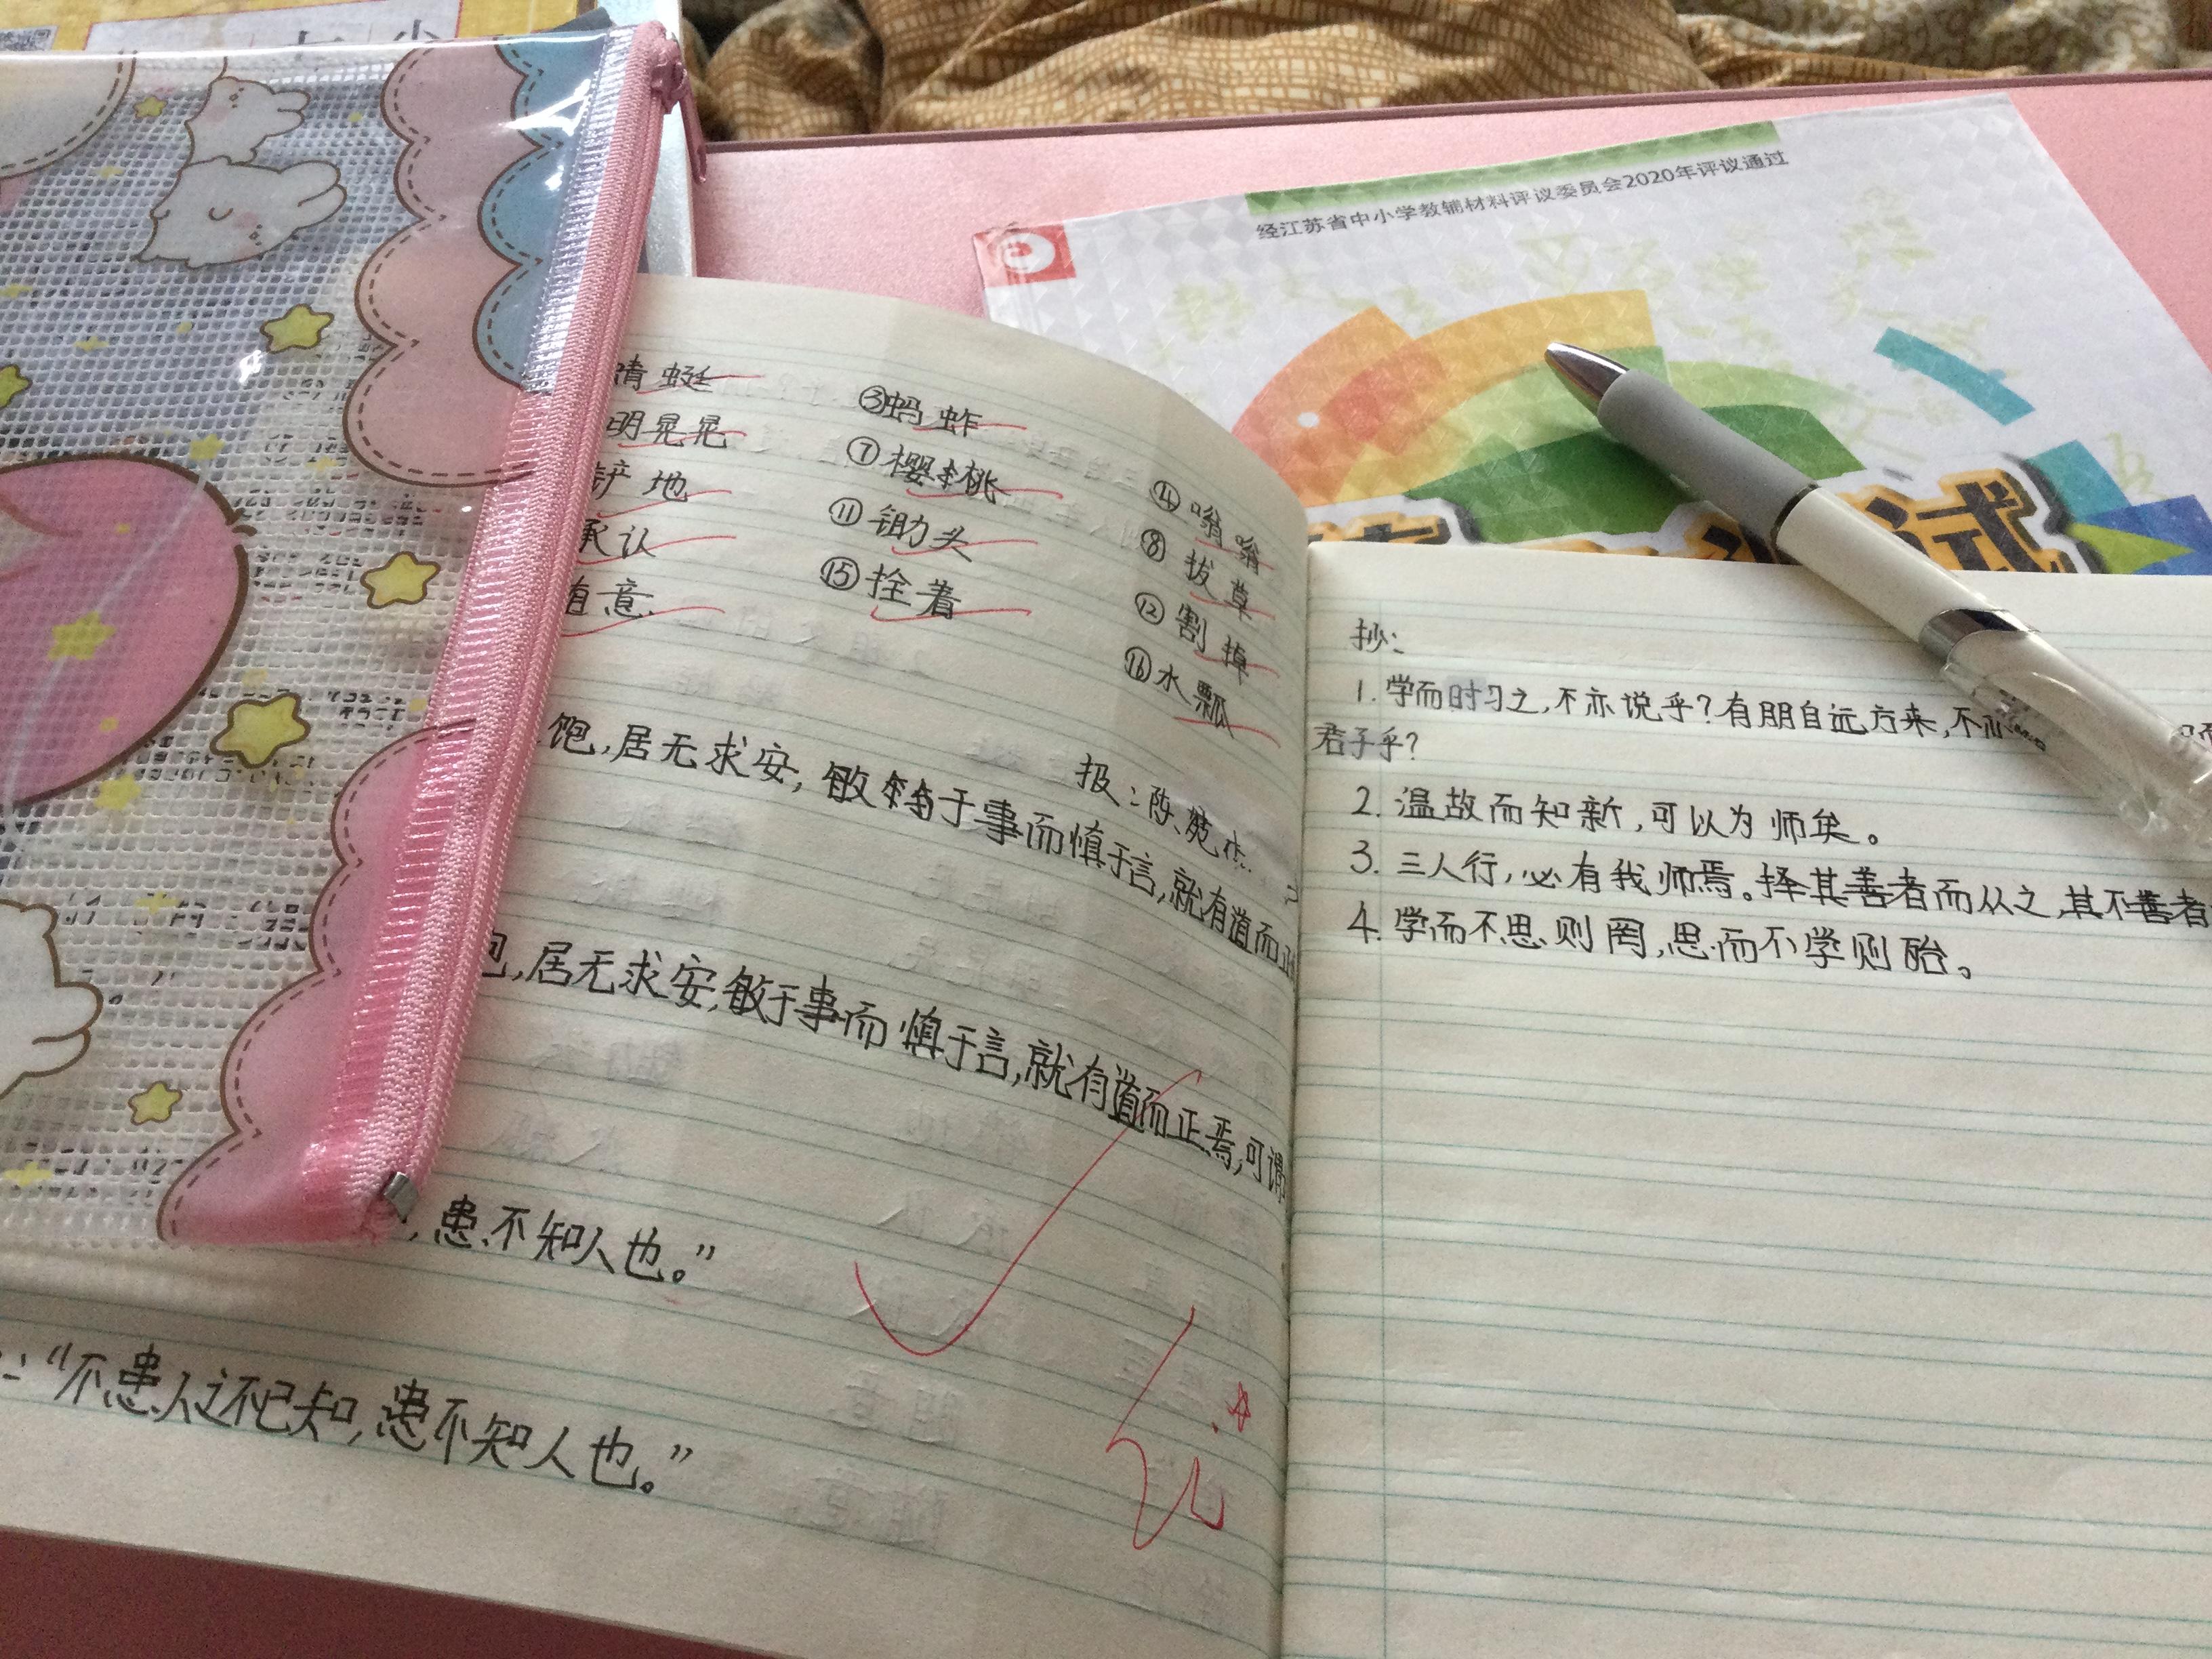 经江苏省中小学教辅材料评议委员会2020年评议通过
试
蜻蜓 ③蚂蚱 ④嗡嗡
明晃晃 ⑦樱桃 ⑧拔草
铲地 ⑪锄头 ⑫割掉
承认 ⑮拴着 ⑯水瓢
随意
报:陈
饱,居无求安,敏于事而慎于言,就有道而正
饱,居无求安,敏于事而慎于言,就有道而正焉,可谓
,患不知人也。”
:“不患人之不己知,患不知人也。”
抄:
1.学而时习之,不亦说乎?有朋自远方来,不亦
君子乎?
2.温故而知新,可以为师矣。
3.三人行,必有我师焉。择其善者而从之,其不善者
4.学而不思则罔,思而不学则殆。